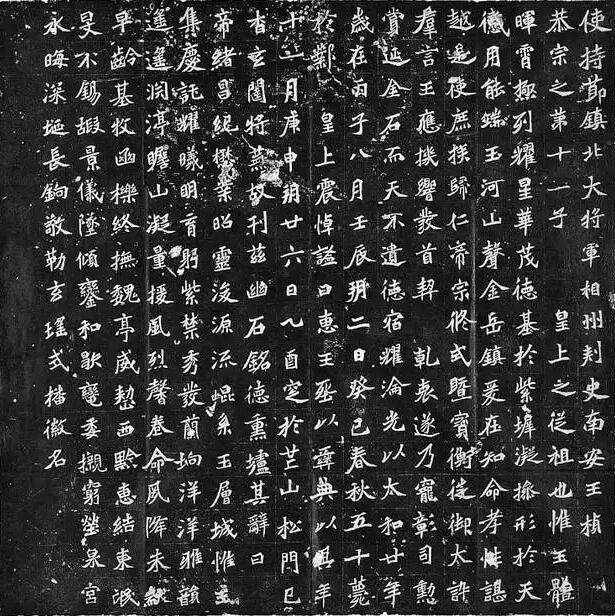 使持節鎮北大將軍相州刺史南安王楨
恭宗之第十一子　皇上之從祖也惟王體
暉霄極列耀星華茂德基於紫墀凝操形於天
儀用能端玉河山聲金岳鎮爰在知命孝性諶
越是使庶族歸仁帝宗攸式暨寶衡徙御太訊
羣言王應機響發首契　乾衷遂乃寵彰司勳
賞延金石而天不遺德宿耀淪光以太和廿年
歲在丙子八月壬辰朔二日癸巳春秋五十薨
於鄴　皇上震悼諡曰惠王葬以彝典以其年
十一月庚申朔廿六日乙酉窆於芒山松門已
杳玄闈將蕪故刊茲幽石銘德熏壚其辭曰
帝緒昌紀懋業昭靈浚源流崐系玉層城惟王
集慶託耀曦明育躬紫禁秀發蘭坰洋洋雅韻
遙遙淵渟瞻山凝量援風烈馨卷命夙降未黻
早齡基牧幽櫟終撫魏亭威整西黔惠結東氓
旻不錫嘏景儀墜傾鑾和歇轡委櫬窮塋泉宮
永晦深埏長敬勒玄瑤式播徽名